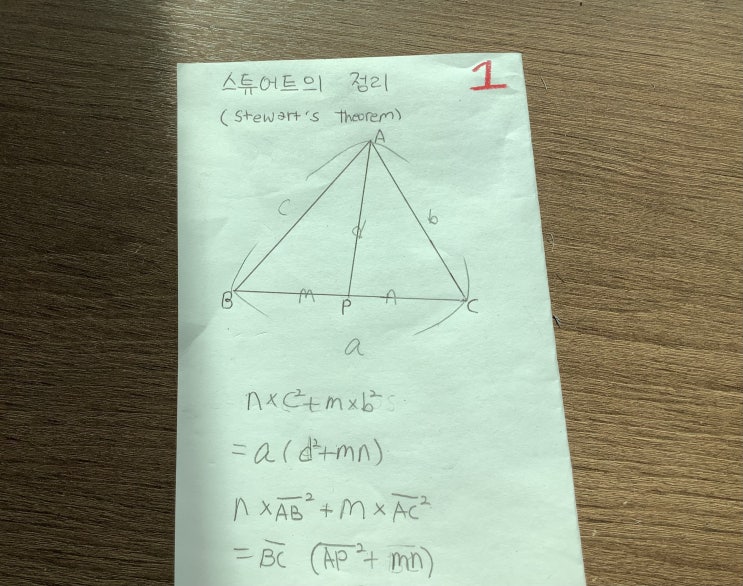 스튜어트의 정리
1
(Stewart's theorem)
A
c
d
b
B
m
P
n
C
a
n×c²+m×b²
=a(d²+mn)
n×A̅B̅²+m×A̅C̅²
=B̅C̅ (A̅P̅²+m̅n̅)